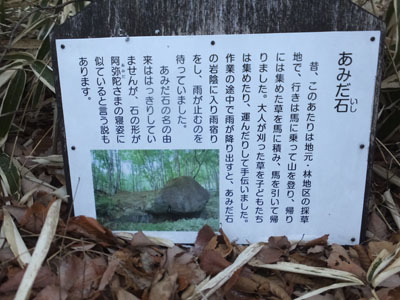 あみだ石
いし
昔、このあたりは地元・林地区の採草
地で、行きは馬に乗って山を登り、帰り
には集めた草を馬に積み、馬を引いて帰
りました。大人が刈った草を子どもたち
は集めたり、運んだりして手伝いました。
作業の途中で雨が降り出すと、あみだ石
の岩陰に入り雨宿り
をし、雨が止むのを
待っていました。
あみだ石の名の由
来ははっきりしてい
ませんが、石の形が
阿弥陀さまの寝姿に
似ていると言う説も
あります。